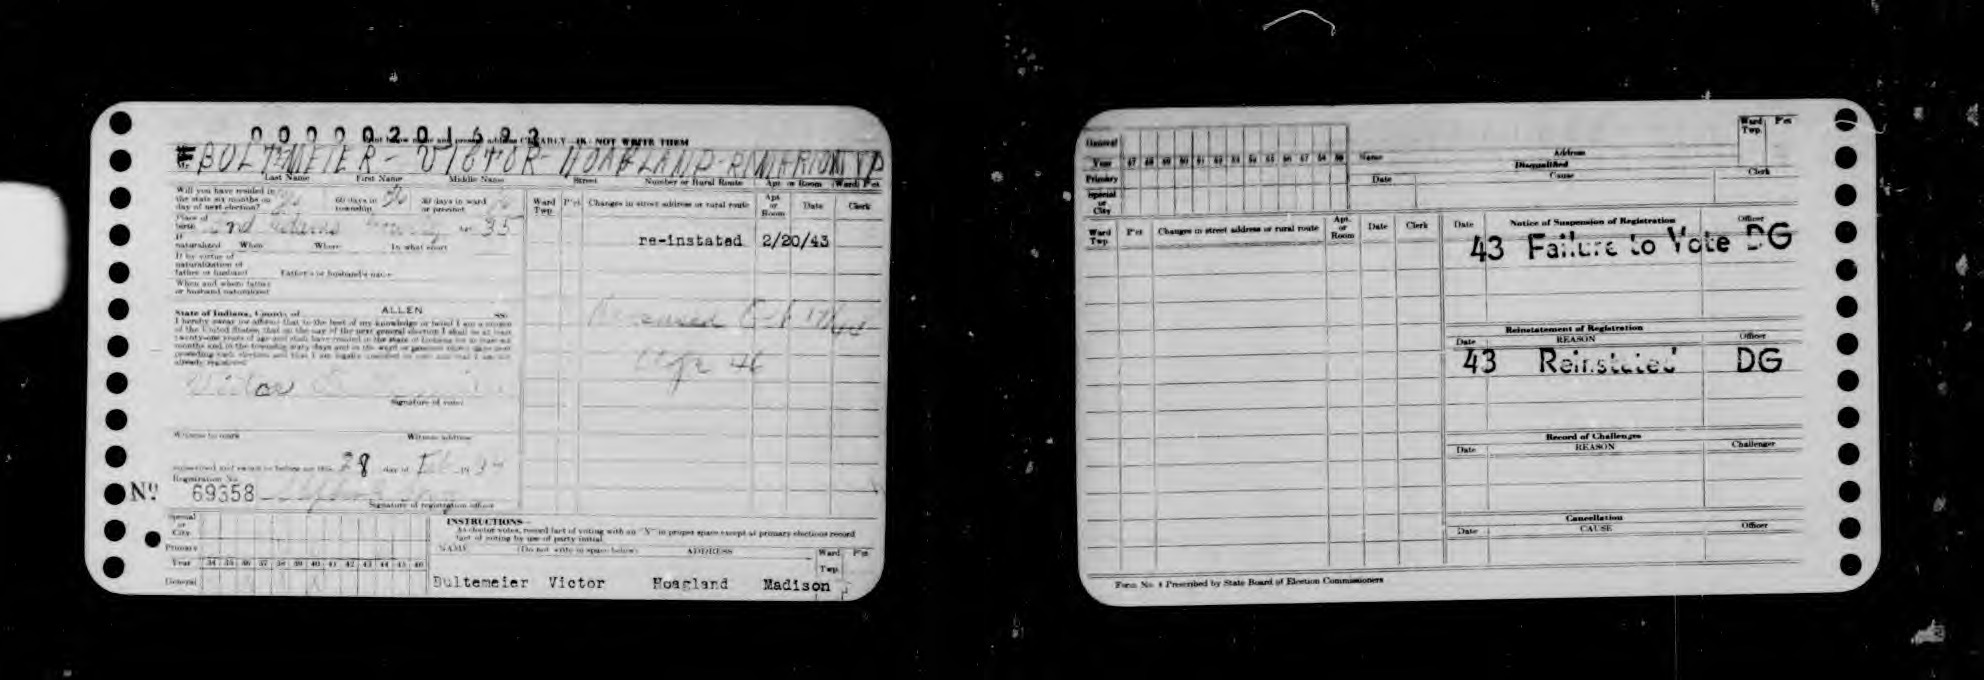 000020 1693
CLEARLY - IK - NOT WRITE THEM
BULTEMEIER - VICTOR - HOAGLAND - R MARION TP
Last Name First Name Middle Name Street Number or Rural Route Apt. or Room (Ward) P'ct
Will you have resided in
the state six months on 60 days in 30 days in ward
day of next election? township or precinct
Ward Twp. P'ct Changes in street address or rural route Apt. or Room Date Clerk
Place of
birth Ind Adams 35
If
naturalized When Where In what court
re-instated 2/20/43
If by virtue of
naturalization of
father or husband Father's or husband's name
When and where father
or husband naturalized
State of Indiana, County of ALLEN ss:
I hereby swear (or affirm) that to the best of my knowledge or belief I am a citizen
of the United States; that on the day of the next general election I shall be at least
twenty-one years of age and shall have resided in the state of Indiana for at least six
months and in the township sixty days and in the ward or precinct thirty days next
preceding such election and that I am legally qualified to vote and that I am not
already registered.
46
Victor
Signature of voter
Witness to mark Witness address
Subscribed and sworn to before me this 28 day of Feb 19 34
Registration No.
No. 69358
Signature of registration officer
Special
or
City
Primary
Year 34 35 36 37 38 39 40 41 42 43 44 45 46
General
INSTRUCTIONS—
As elector votes, record fact of voting with an "X" in proper space except at primary elections record
fact of voting by use of party initial.
NAME (Do not write in space below) ADDRESS Ward Twp. P'ct
Bultemeier Victor Hoagland Madison
General
Year 47 48 49 50 51 52 53 54 55 56 57 58 59
Primary
Special
or
City
Name Address Ward Twp. P'ct
Disqualified
Date Cause Clerk
Ward Twp. P'ct Changes in street address or rural route Apt. or Room Date Clerk
Date Notice of Suspension of Registration Officer
43 Failure to Vote DG
Reinstatement of Registration
Date REASON Officer
43 Reinstated DG
Record of Challenges
Date REASON Challenger
Cancellation
Date CAUSE Officer
Form No. 4 Prescribed by State Board of Election Commissioners